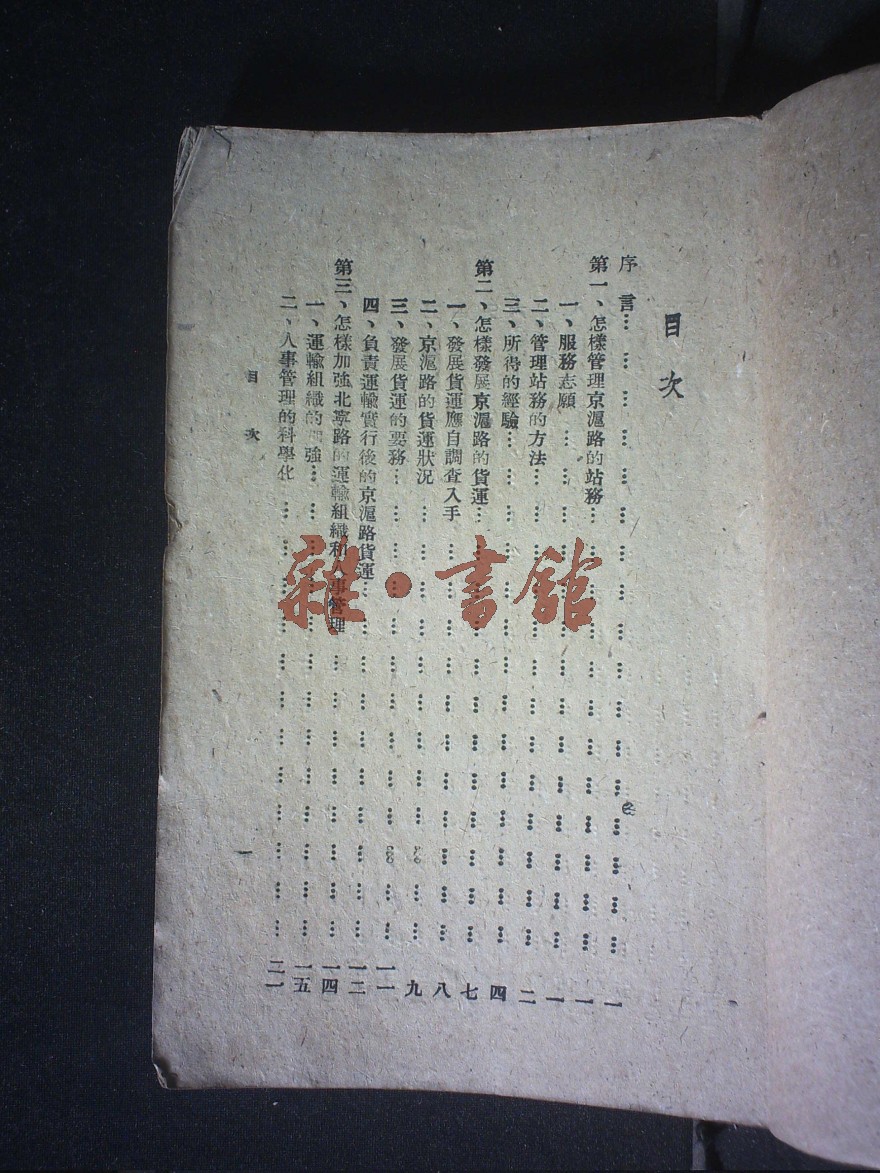 目次
序言…………………………………………一
第一、怎樣管理京滬路的站務…………………………一
一、服務志願…………………………一
二、管理站務的方法…………………………二
三、所得的經驗…………………………四
第二、怎樣發展京滬路的貨運…………………………七
一、發展貨運應自調查入手…………………………八
二、京滬路的貨運狀況…………………………九
三、發展貨運的要務…………………………一一
四、負責運輸實行後的京滬路貨運…………………………一二
第三、怎樣加強北寧路的運輸組織和人事管理…………………………一四
一、運輸組織的加強…………………………一五
二、人事管理的科學化…………………………二一
目次
一
雜·書館